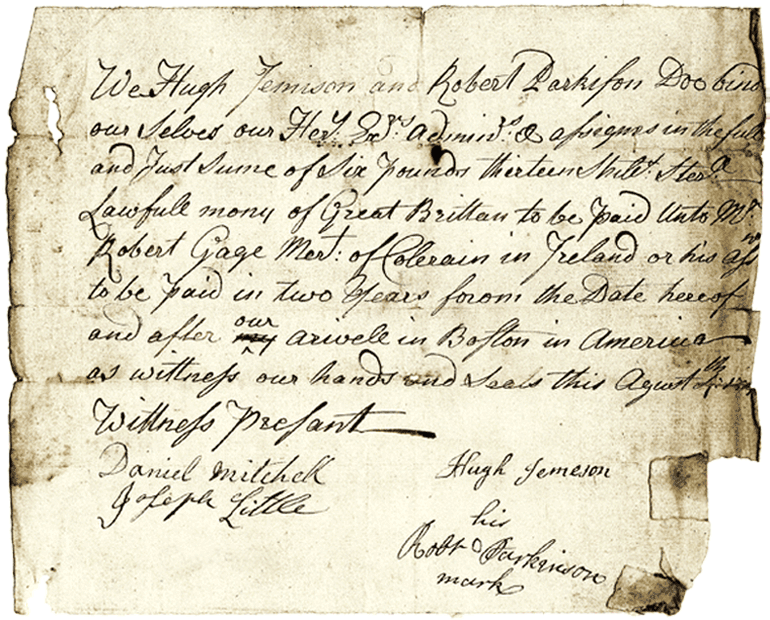 We Hugh Jemison and Robert Parkiſon Doo bind
our Selves our Herˢ. Exʳˢ. Adminʳˢ. & aſsignes in the full
and Just Sume of Six Pounds thirteen Shilˢ. Sterˡ
Lawfull mony of Great Brittan to be Paid Unto Mʳ
Robert Gage Merᵗ: of Colerain in Ireland or his aſs
to be Paid in two Years forom the Date hereof
and after our my arivell in Boſton in America
as wittneſs our hands and Seals this Agust
Wittneſs Preſant
Daniel Mitchell
Joſeph Little
Hugh Jemeson
his
Robt Parkinson
mark